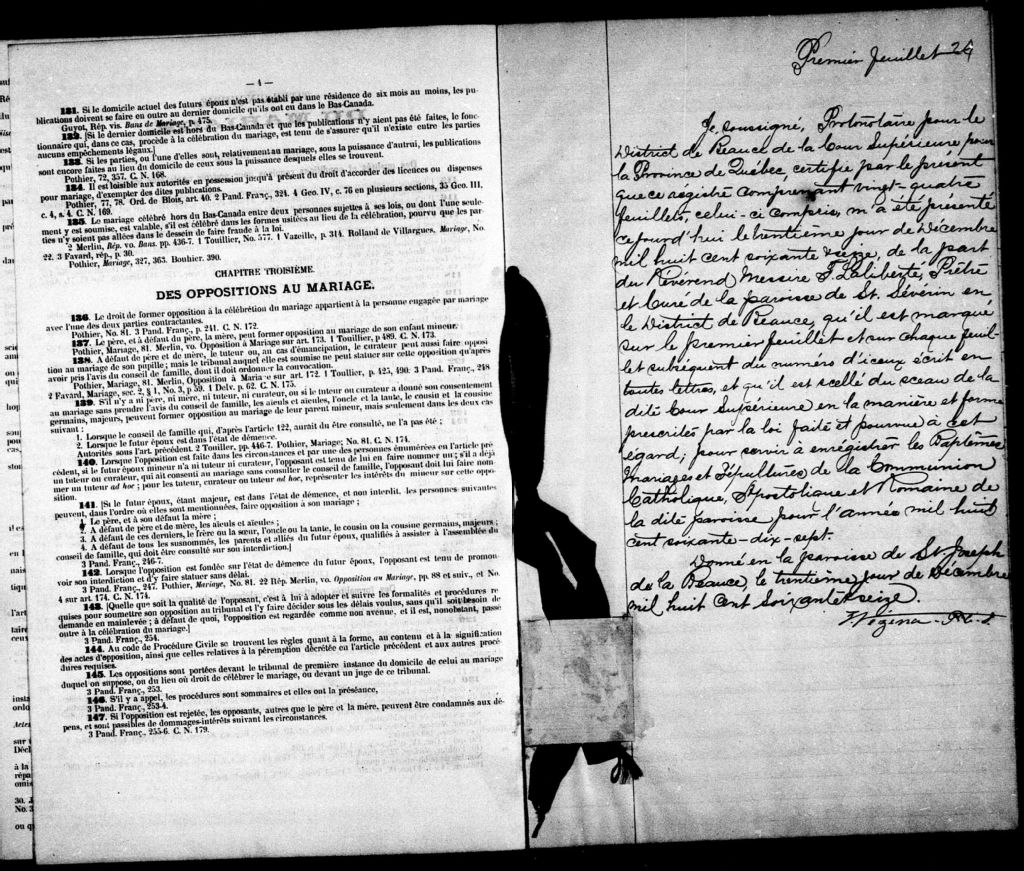 — 4 —
131. Si le domicile actuel des futurs époux n'est pas établi par une résidence de six mois au moins, les pu-
blications doivent se faire en outre au dernier domicile qu'ils ont eu dans le Bas-Canada.
Guyot, Rép. vis. Bans de Mariage, p. 475.
132. [Si le dernier domicile est hors du Bas-Canada et que les publications n'y aient pas été faites, le fonc-
tionnaire qui, dans ce cas, procède à la célébration du mariage, est tenu de s'assurer qu'il n'existe entre les parties
aucuns empêchements légaux.]
133. Si les parties, ou l'une d'elles sont, relativement au mariage, sous la puissance d'autrui, les publications
sont encore faites au lieu du domicile de ceux sous la puissance desquels elles se trouvent.
Pothier, 72, 357. C. N. 168.
134. Il est loisible aux autorités en possession jusqu'à présent du droit d'accorder des licences ou dispenses
pour mariage, d'exempter des dites publications.
Pothier, 77, 78. Ord. de Blois, art. 40. 2 Pand. Franç., 324. 4 Geo. IV, c. 76 en plusieurs sections, 35 Geo. III,
c. 4, s. 4. C. N. 169.
135. Le mariage célébré hors du Bas-Canada entre deux personnes sujettes à ses lois, ou dont l'une seule-
ment y est soumise, est valable, s'il est célébré dans les formes usitées au lieu de la célébration, pourvu que les par-
ties n'y soient pas allées dans le dessein de faire fraude à la loi.
2 Merlin, Rép. vo. Bans. pp. 436-7. 1 Touillier, No. 577. 1 Vazeille, p. 314. Rolland de Villargues, Mariage, No.
22. 3 Favard, rép., p. 30.
Pothier, Mariage, 327, 363. Bouhier. 390.
CHAPITRE TROISIÈME.
DES OPPOSITIONS AU MARIAGE.
136. Le droit de former opposition à la célébrition du mariage appartient à la personne engagée par mariage
avec l'une des deux parties contractantes.
Pothier, No. 81. 3 Pand. Franç., p. 241. C. N. 172.
137. Le père, et à défaut du père, la mère, peut former opposition au mariage de son enfant mineur.
Pothier, Mariage, 81. Merlin, vo. Opposition à Mariage sur art. 173. 1 Touillier, p 489. C. N. 173.
138. A défaut de père et de mère, le tuteur ou, au cas d'émancipation, le curateur peut aussi faire opposi-
tion au mariage de son pupille; mais le tribunal auquel elle est soumise ne peut statuer sur cette opposition qu'après
avoir pris l'avis du conseil de famille, dont il doit ordonner la convocation.
Pothier, Mariage, 81. Merlin, Opposition à Maria e sur art. 172. 1 Touillier, p. 425, 490. 3 Pand. Franç., 248
2 Favard, Mariage, sec. 2, § 1, No. 3, p 59. 1 Delv. p. 62. C. N. 175.
139. S'il n'y a ni père, ni mère, ni tuteur, ni curateur, ou si le tuteur ou curateur a donné son consentement
au mariage sans prendre l'avis du conseil de famille, les aïeuls et aïeules, l'oncle et la tante, le cousin et la cousine
germains, majeurs, peuvent former opposition au mariage de leur parent mineur, mais seulement dans les deux cas
suivant :
1. Lorsque le conseil de famille qui, d'après l'article 122, aurait du être consulté, ne l'a pas été ;
2. Lorsque le futur époux est dans l'état de démence.
Autorités sous l'art. précédent. 2 Touiller. pp. 446-7. Pothier, Mariage; No. 81. C. N. 174.
140. Lorsque l'opposition est faite dans ces circonstances et par une des personnes énumérées en l'article pré
cédent, si le futur époux mineur n'a ni tuteur ni curateur, l'opposant est tenu de lui en faire nommer un ; s'il a déjà
un tuteur ou curateur, qui ait consenti au mariage sans consulter le conseil de famille, l'opposant doit lui faire nom-
mer un tuteur ad hoc ; pour les tuteur, curateur ou tuteur ad hoc, représenter les intérêts du mineur sur cette oppo-
sition.
141. [Si le futur époux, étant majeur, est dans l'état de démence, et non interdit, les personnes suivantes
peuvent, dans l'ordre où elles sont mentionnées, faire opposition à son mariage ;
1. Le père, et à son défaut la mère ;
2. A défaut de père et de mère, les aïeuls et aïeules ;
3. A défaut de ces derniers, le frère ou la sœur, l'oncle ou la tante, le cousin ou la cousine germains, majeurs ;
4. A défaut de tous les susnommés, les parents et alliés du futur époux, qualifiés à assister à l'assemblée du
conseil de famille, qui doit être consulté sur son interdiction.]
3 Pand. Franç., 246-7.
142. Lorsque l'opposition est fondée sur l'état de démence du futur époux, l'opposant est tenu de promou-
voir son interdiction et d'y faire statuer sans délai.
3 Pand. Franç., 247. Pothier, Mariage, No. 81. 22 Rép. Merlin, vo. Opposition au Mariage, pp. 88 et suiv., et No.
4 sur art. 174. C. N. 174.
143. [Quelque que soit la qualité de l'opposant, c'est à lui à adopter et suivre les formalités et procédures re
quises pour soumettre son opposition au tribunal et l'y faire décider sous les délais voulus, sans qu'il soit besoin de
demande en mainlevée ; à défaut de quoi, l'opposition est regardée comme non avenue, et il est, nonobstant, passé
outre à la célébration du mariage.]
3 Pand. Franç., 254.
144. Au code de Procédure Civile se trouvent les règles quant à la forme, au contenu et à la signification
des actes d'opposition, ainsi que celles relatives à la péremption décrétée en l'article précédent et aux autres procé-
dures requises.
145. Les oppositions sont portées devant le tribunal de première instance du domicile de celui au mariage
duquel on suppose, ou du lieu où droit de célébrer le mariage, ou devant un juge de ce tribunal.
3 Pand. Franç., 253.
146. S'il y a appel, les procédures sont sommaires et elles ont la préséance,
3 Pand. Franç., 253-4.
147. Si l'opposition est rejetée, les opposants, autres que le père et la mère, peuvent être condamnés aux dé-
pens, et sont passibles de dommages-intérêts suivant les circonstances.
3 Pand. Franç., 255-6. C. N. 179.
Premier feuillet 24
Je, soussigné, Protonotaire pour le
District de Beauce de la Cour Supérieure pour
la Province de Québec, certifie par le présent
que ce registre comprenant vingt-quatre
feuillets, celui-ci compris, m'a été présenté
ce jourd'hui le trentième jour de Décembre
mil huit cent soixante & seize, de la part
du Révérend Messire F. Laliberté, Prêtre
et Curé de la paroisse de St. Séverin en
le District de Beauce, qu'il est marqué
sur le premier feuillet et sur chaque feuil-
let subséquent du numéro d'iceux écrit en
toutes lettres, et qu'il est scellé du sceau de la
dite Cour Supérieure en la manière et forme
prescrites par la loi faite et pourvue à cet
égard; pour servir à enrégistrer les Baptêmes
Mariages et Sépultures de la Communion
Catholique, Apostolique et Romaine de
la dite paroisse pour l'année mil huit
cent soixante-dix-sept.
Donné en la paroisse de St. Joseph
de la Beauce, le trentième jour de Décembre
mil huit cent soixante & seize.